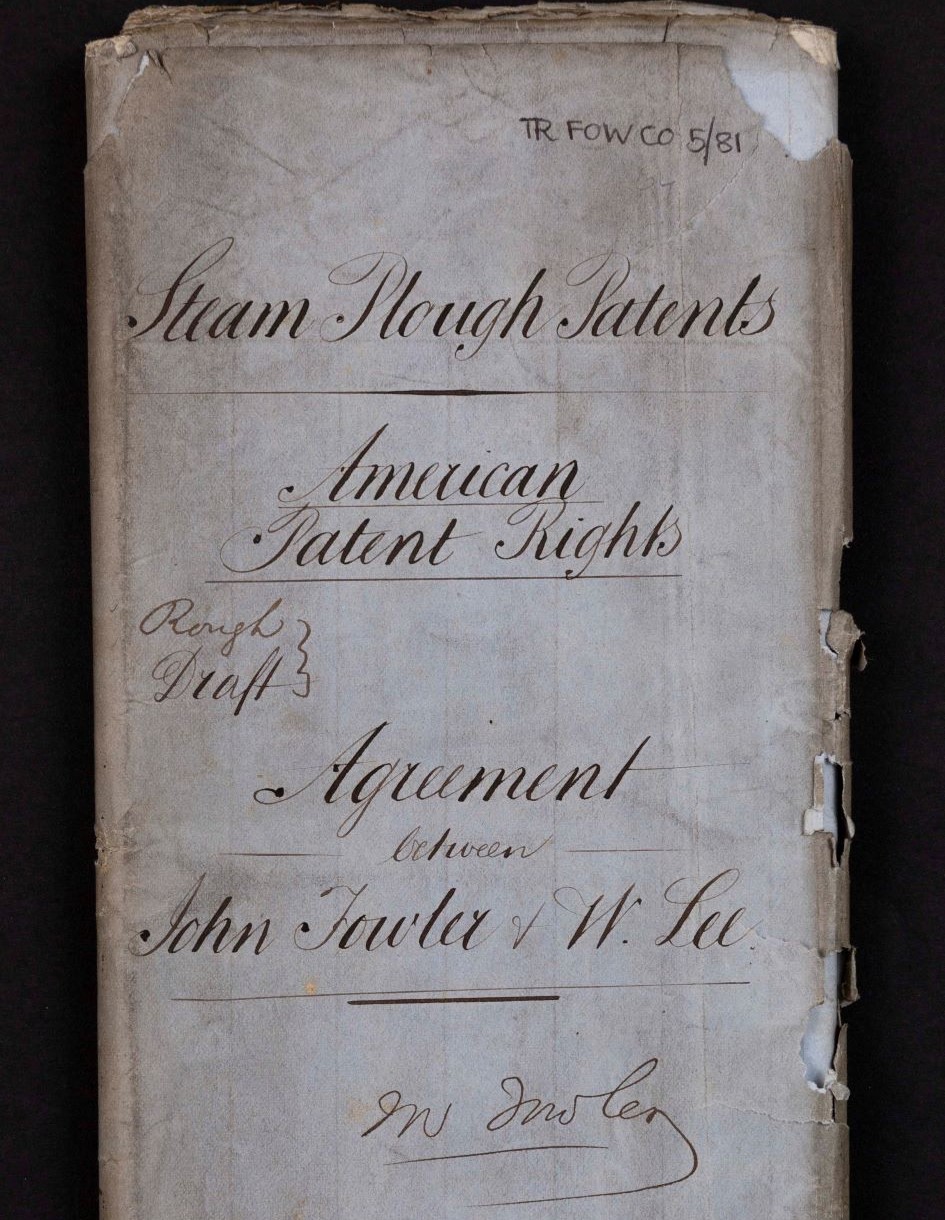 TR FOW CO 5/81
Steam Plough Patents
American
Patent Rights
Rough
Draft
Agreement
between
John Fowler & W. Lee
Fowler